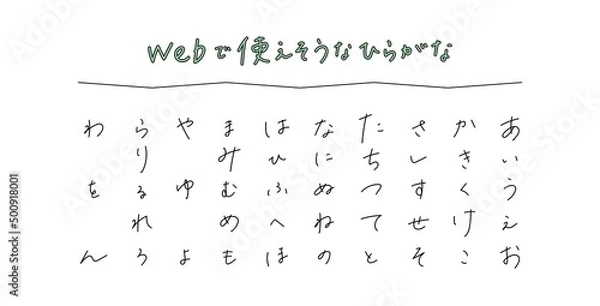 Webで使えそうなひらがな
あいうえお
かきくけこ
さしすせそ
たちつてと
なにぬねの
はひふへほ
まみむめも
やゆよ
らりるれろ
わをん
Adobe Stock | #500918001
Adobe Stock
Adobe Stock
Adobe Stock